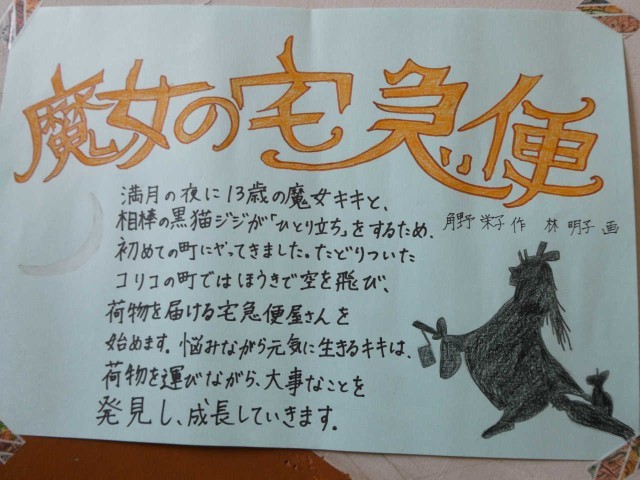 魔女の宅急便
満月の夜に13歳の魔女キキと、
相棒の黒猫ジジが「ひとり立ち」をするため、
角野 栄子 作 林 明子 画
初めての町にやってきました。たどりついた
コリコの町では ほうきで空を飛び、
荷物を届ける宅急便屋さんを
始めます。悩みながら元気に生きるキキは、
荷物を運びながら、大事なことを
発見し、成長していきます。